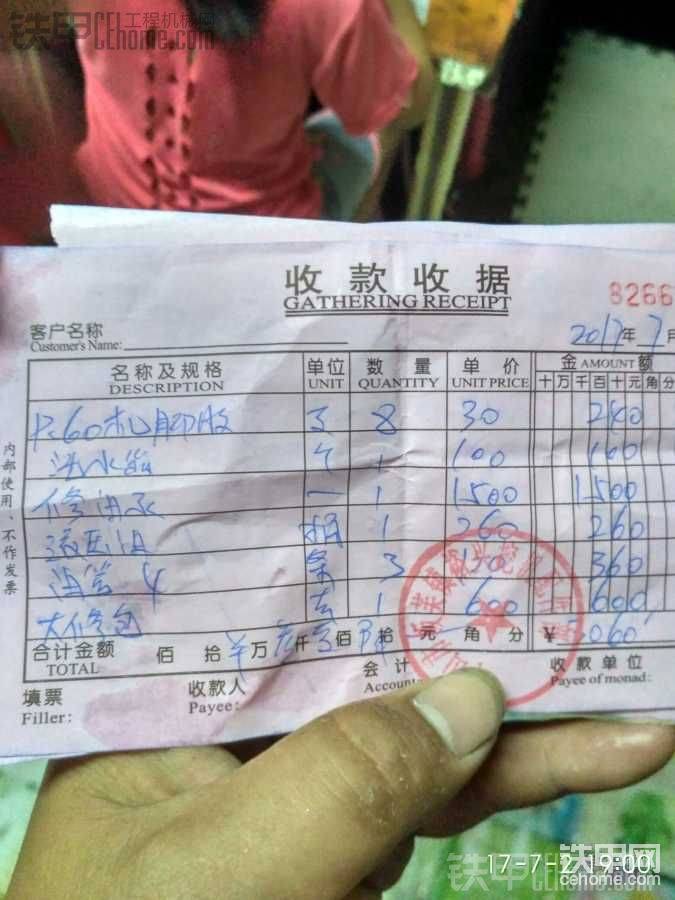 铁甲 工程机械网
CEhome.com
收款收据
GATHERING RECEIPT
8266
客户名称
Customer's Name:
2017年7月
名称及规格 单位 数量 单价 金额
DESCRIPTION UNIT QUANTITY UNIT PRICE AMOUNT
十万千百十元角分
60机脚胶 8 30 240
个 1 100 100
修油泵 一 1 1500 1500
液压油 桶 1 260 260
油管 条 3 360
大修包 1 600 600
合计金额 佰 拾 万 仟 佰 拾 元 角 分 ¥ 3060
TOTAL
内部使用、不作发票
填票 收款人 会计 收款单位
Filler: Payee: Account Payee of monad:
17-7-2 19:00
铁甲网
cehome.com